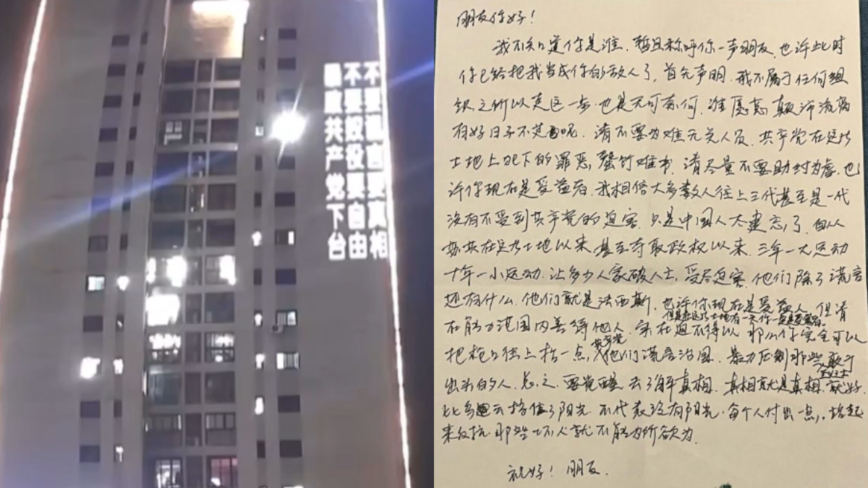 不要谎言要真相
不要奴役要自由
暴政共产党下台
朋友你好！
我不知道你是谁，暂且称呼你一声朋友，也许此时
你已经把我当成你的敌人了，首先声明，我不属于任何组
织之所以走这一步，也是无可奈何，谁愿意颠沛流离
有好日子不过呢，请不要为难无关人员，共产党在这片
土地上犯下的罪恶，罄竹难书，请尽量不要助纣为虐，也
许你现在是受益者，我相信大多数人往上三代甚至是一代
没有不受到共产党的迫害，只是中国人太健忘了，自从
共在这片土地以来，甚至夺取政权以来，三年一大运动
十年一小运动，让多少人家破人亡，受尽迫害，他们除了谎言
还有什么，他们就是法西斯，也许你现在是受益人，但请
在能力范围内善待他人，实在迫不得以，那么你完全可以
把枪口往上抬一点，共产党他们谎言治国，暴力压制那些敢于
出来的人，总之，要觉醒，去了解真相，真相就是真相，就好
比乌云挡住了阳光，不代表没有阳光，每个人付出一点，站起
来反抗，那些坏人就不能为所欲为。
祝好！朋友